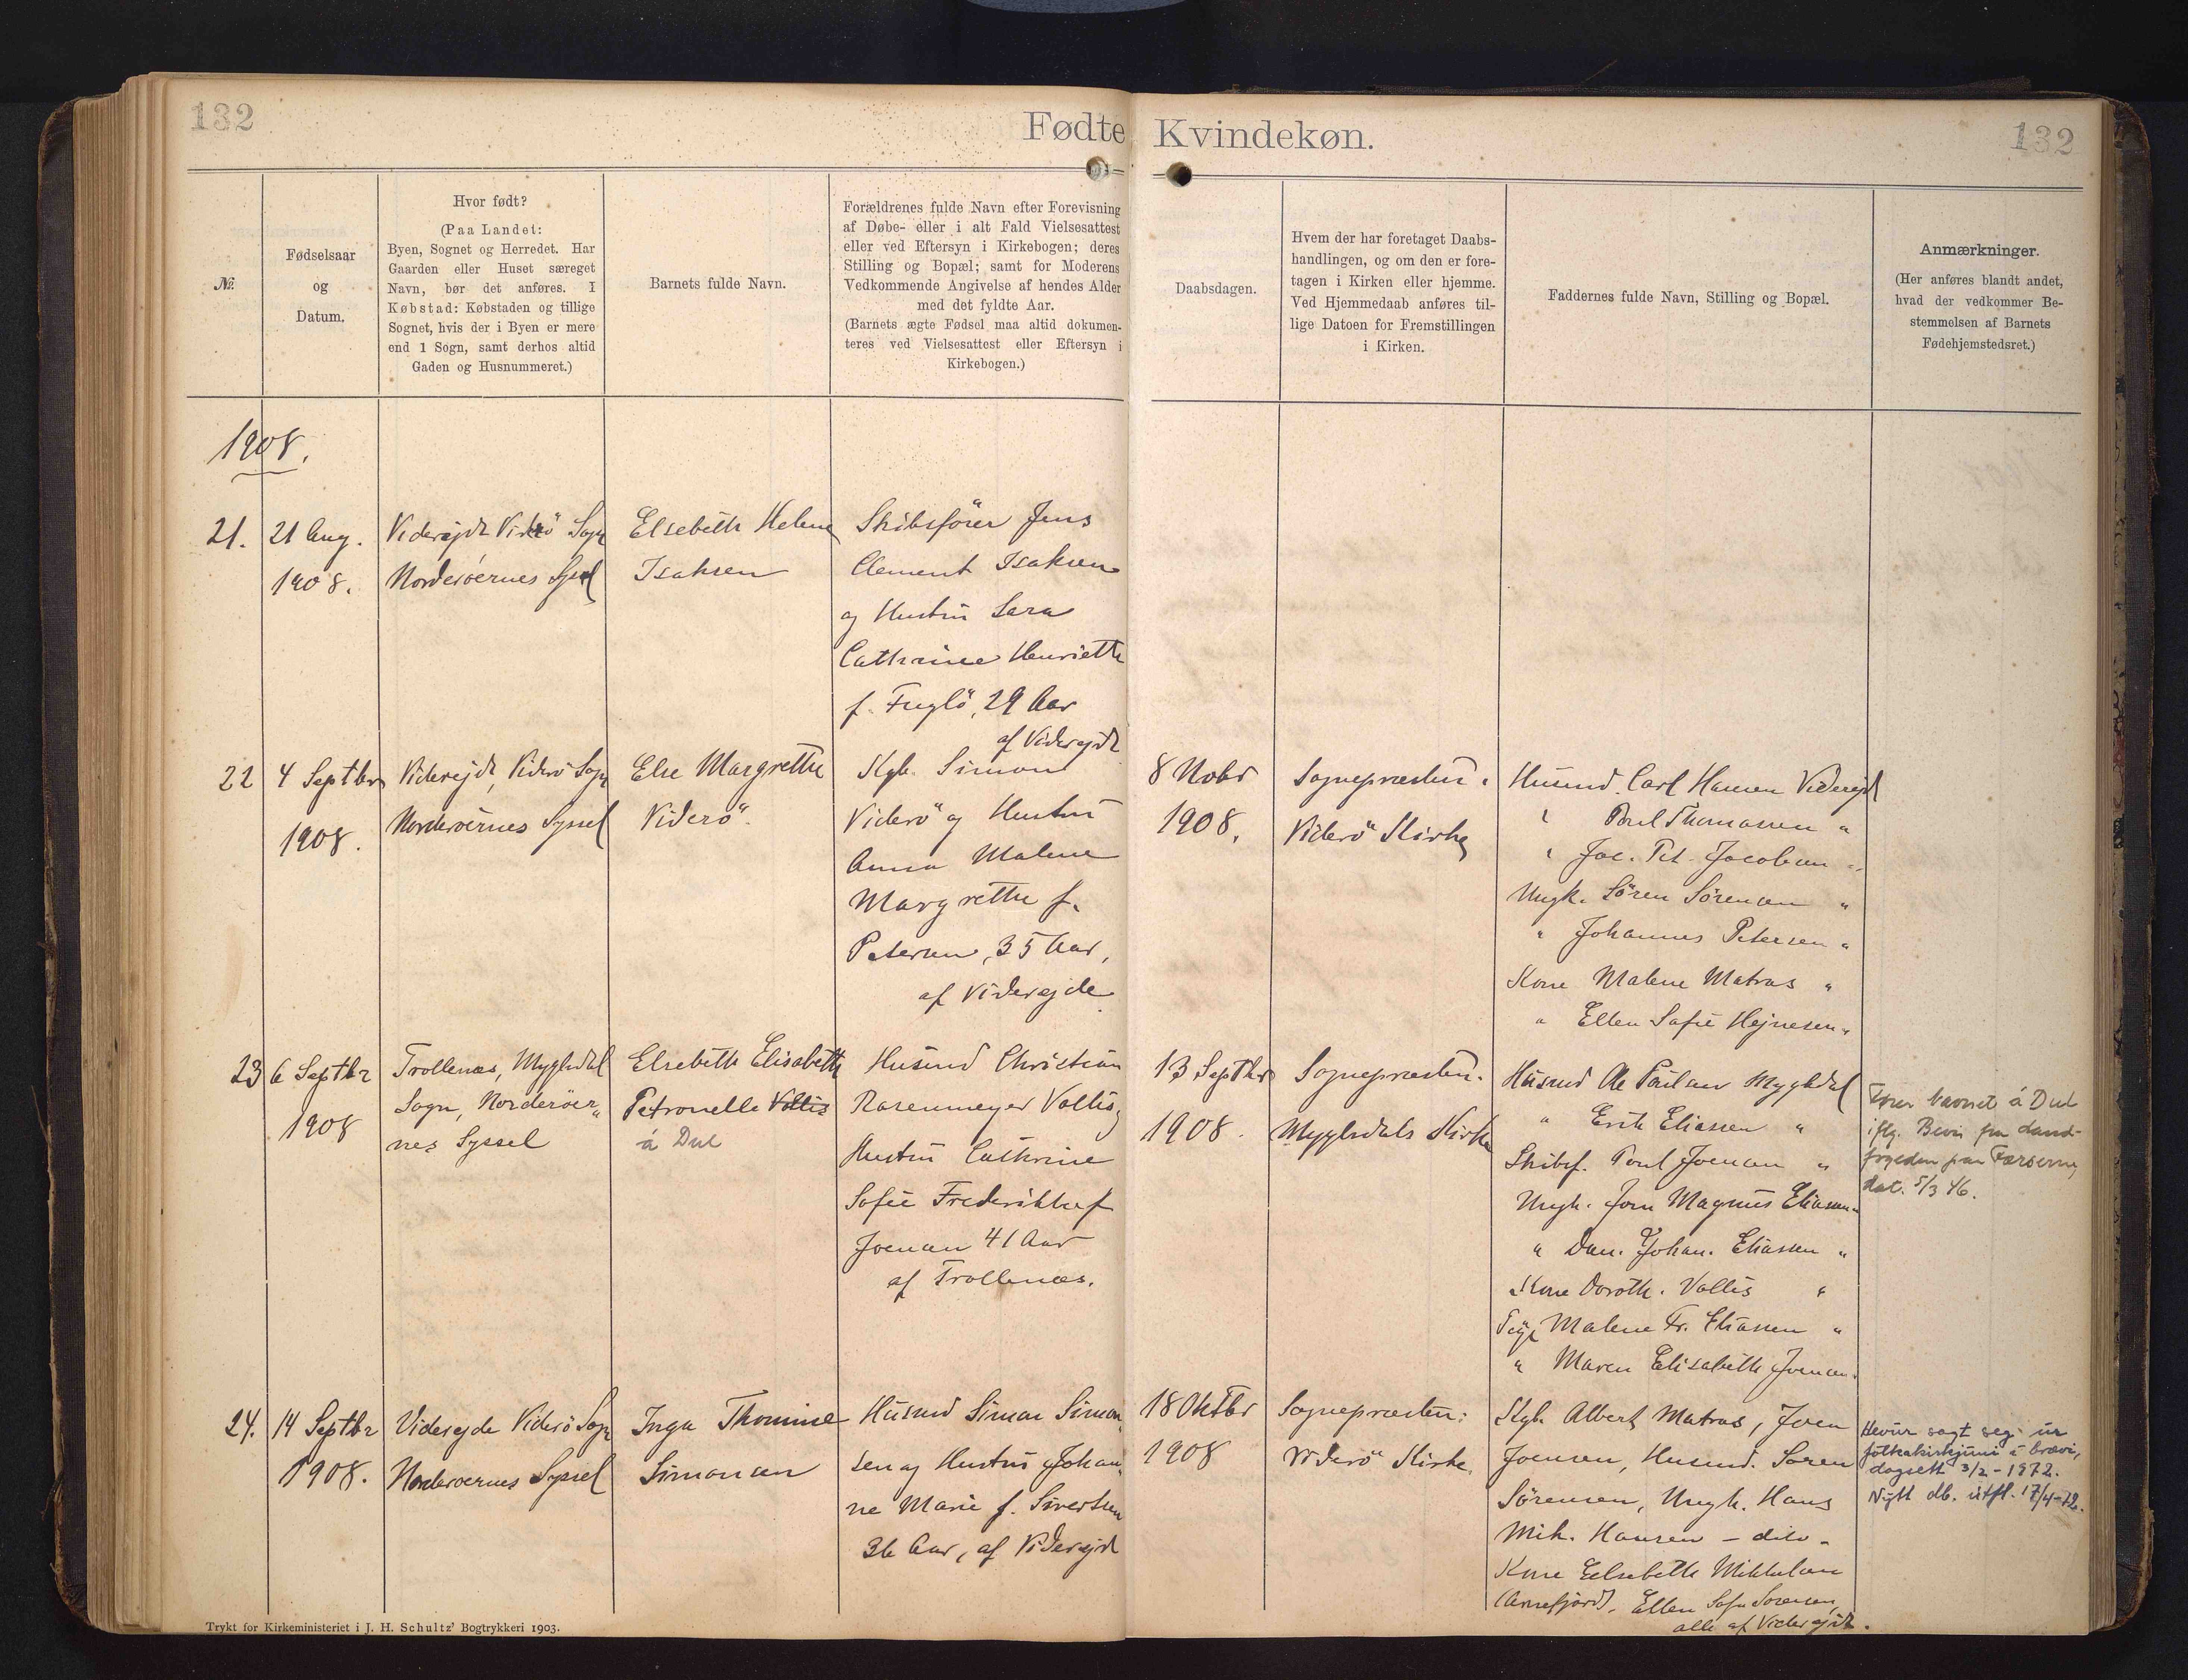 132
Fødte Kvindekøn.
132
№
Fødselsaar
og
Datum.
Hvor født?
(Paa Landet:
Byen, Sognet og Herredet. Har
Gaarden eller Huset særeget
Navn, bør det anføres. I
Købstad: Købstaden og tillige
Sognet, hvis der i Byen er mere
end 1 Sogn, samt derhos altid
Gaden og Husnummeret.)
Barnets fulde Navn.
Forældrenes fulde Navn efter Forevisning
af Døbe- eller i alt Fald Vielsesattest
eller ved Eftersyn i Kirkebogen; deres
Stilling og Bopæl; samt for Moderens
Vedkommende Angivelse af hendes Alder
med det fyldte Aar.
(Barnets ægte Fødsel maa altid dokumen-
teres ved Vielsesattest eller Eftersyn i
Kirkebogen.)
Daabsdagen.
Hvem der har foretaget Daabs-
handlingen, og om den er fore-
tagen i Kirken eller hjemme.
Ved Hjemmedaab anføres til-
lige Datoen for Fremstillingen
i Kirken.
Faddernes fulde Navn, Stilling og Bopæl.
Anmærkninger.
(Her anføres blandt andet,
hvad der vedkommer Be-
stemmelsen af Barnets
Fødehjemstedsret.)
1908.
21.
21 Aug.
1908.
Viderejde Viderö Sogn
Norderöernes Syssel
Elsebeth Helene
Isaksen
Skibsförer Jens
Clement Isaksen
og Hustru Sara
Cathrine Henriette
f. Fuglö, 29 Aar
af Viderejde
22
4 Septbr
1908.
Viderejde, Viderö Sogn
Norderöernes Syssel
Else Margrethe
Viderö.
Kgb. Simon
Viderö og Hustru
Anna Malene
Margrethe f.
Petersen, 35 Aar,
af Viderejde
8 Nobr
1908.
Sognepræsten.
Viderö Kirke
Husmd. Carl Hansen Viderejde
" Poul Thomassen "
" Jac. Pet. Jacobsen "
Ungk. Sören Sörensen "
" Johannes Petersen "
Kone Malene Matras "
" Ellen Sofie Hejnesen "
23
6 Septbr
1908
Trollenæs, Mygledal
Sogn, Norderöer-
nes Syssel
Elsebeth Elisabeth
Petronelle Vollis
á Dul
Husmd Christian
Rasenmeyer Vollis og
Hustru Cathrine
Sofie Frederikke f.
Joensen 41 Aar
af Trollenæs.
13 Septbr
1908.
Sognepræsten.
Mygledals Kirke
Husmd Ole Poulsen Mygledal
" Erik Eliassen "
Skibsf. Poul Joensen "
Ungk. Jorn Magnus Eliassen "
" Dan. Johan. Eliassen "
Kone Doroth. Vollis "
Pige Malene Fr. Eliassen "
" Maren Elisabeth Joensen "
Fører navnet á Dul
iflg. Bevis fra Land-
fogeden paa Færøerne,
dat. 5/3 46.
24.
14 Septbr
1908.
Viderejde Viderö Sogn
Norderöernes Syssel
Inga Thomine
Simonsen
Husmd Simon Simon-
sen og Hustru Johan-
ne Marie f. Sivertsen
36 Aar, af Viderejde
18 Oktbr
1908
Sognepræsten:
Viderö Kirke.
Kgb. Albert Matras, Joen
Joensen, Husmd. Sören
Sörensen, Ungk. Hans
Mik. Hansen - dito -
Kone Elsebeth Mikkelsen
(Arnefjord), Ellen Sofie Sörensen,
alle af Viderejde.
Hevur sagt seg úr
fólkakirkjuni í brævi,
dagsett 3/2-1972.
Nýtt db. útfl. 17/4-72.
Trykt for Kirkeministeriet i J. H. Schultz' Bogtrykkeri 1903.